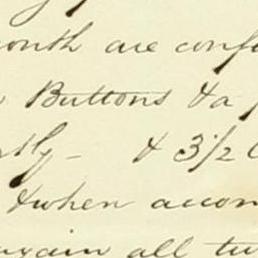 onth are conf
Buttons & a
tly - & 3½
& when accom
again all tw